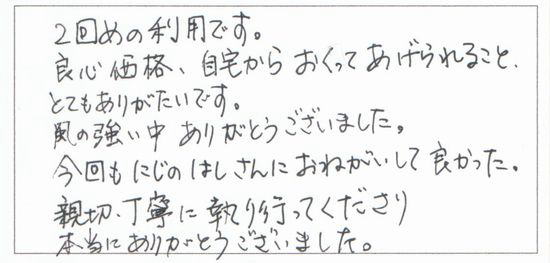 2回めの利用です。
良心価格、自宅からおくってあげられること、
とてもありがたいです。
風の強い中ありがとうございました。
今回もにじのはしさんにおねがいして良かった。
親切、丁寧に執り行ってくださり
本当にありがとうございました。